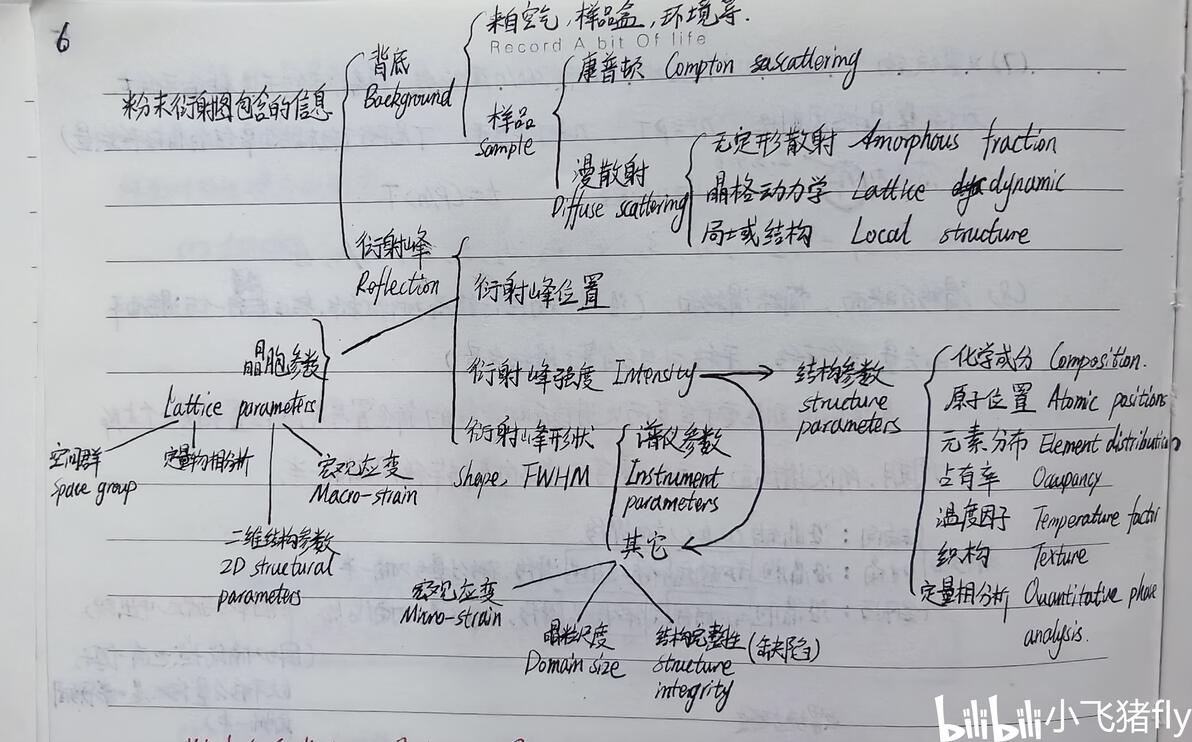 6
来自空气，样品盒，环境等.
Record A bit Of life
背底
Background
康普顿 Compton scattering
粉末衍射图包含的信息
样品
Sample
无定形散射 Amorphous fraction
漫散射
Diffuse scattering
晶格动力学 Lattice dynamic
局域结构 Local structure
衍射峰
Reflection
衍射峰位置
晶胞参数
Lattice parameters
衍射峰强度 Intensity
结构参数
structure
parameters
化学成分 Composition.
原子位置 Atomic positions
元素分布 Element distribution
占有率 Occupancy
温度因子 Temperature factor
织构 Texture
定量相分析 Quantitative phase
analysis.
空间群
Space group
定量物相分析
宏观应变
Macro-strain
衍射峰形状
Shape, FWHM
谱仪参数
Instrument
parameters
其它
二维结构参数
2D structural
parameters
宏观应变
Micro-strain
晶粒尺度
Domain size
结构完整性 (缺陷)
structure
intergrity
bilibili 小飞猪fly